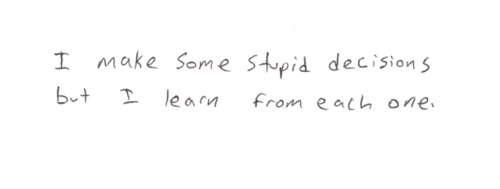 I make some stupid decisions
but I learn from each one.